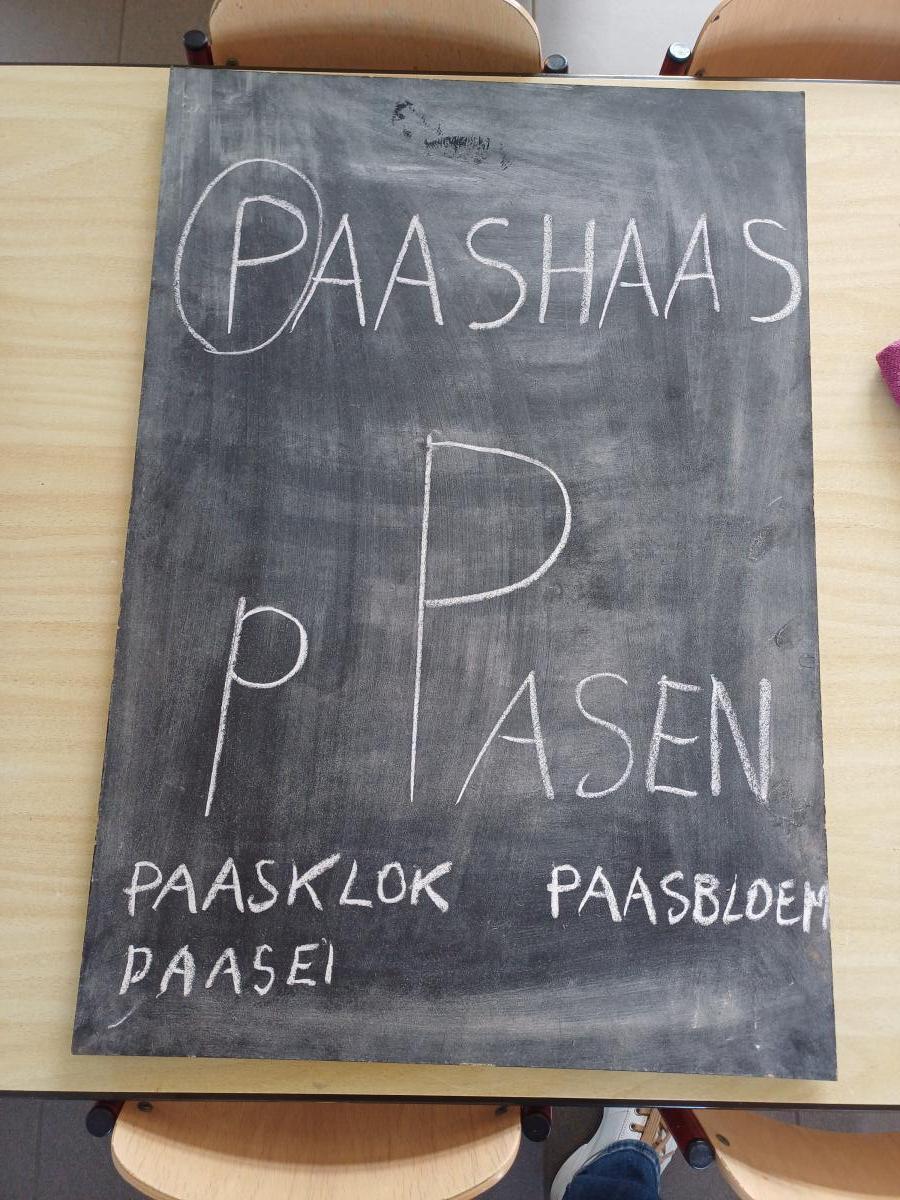 PAASHAAS
p PASEN
PAASKLOK PAASBLOEM
PAASEI